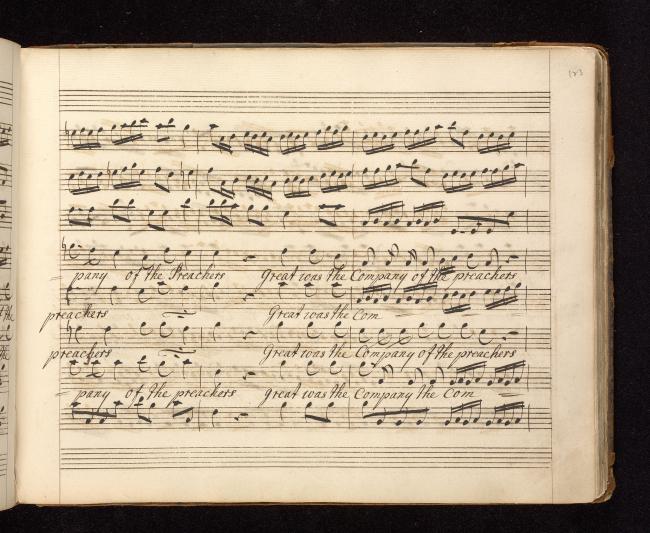 = pany of the Preachers Great was the Company of the preachers
preachers Great was the Com
preachers Great was the Company of the preachers
= pany of the preachers great was the Company the Com =